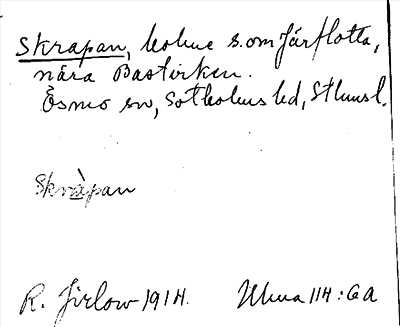 Skrapan, holme s. om Järflotta,
nära Bastviken.
Ösmo sn, Sotholms hd, Sthms l.
Skràpan
R. Jirlow 1914. Ulma 114:6a